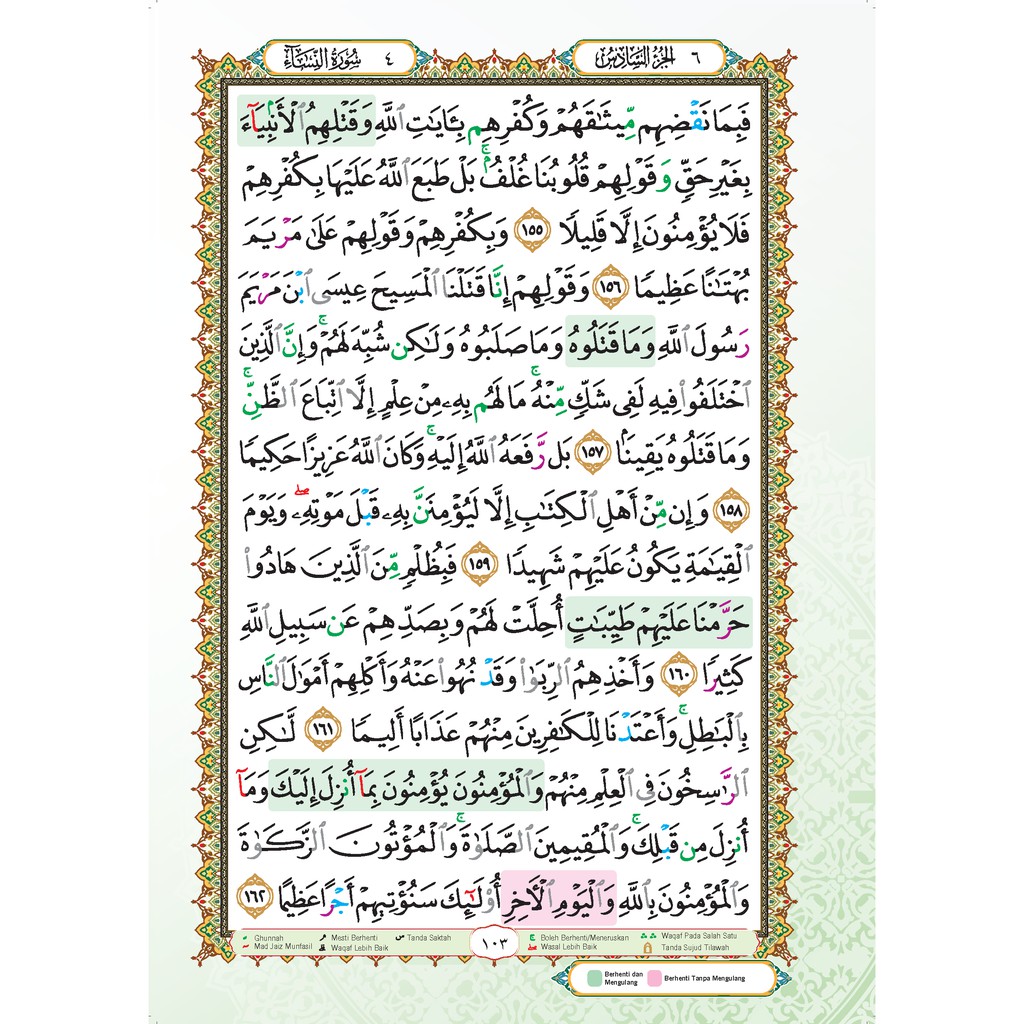 ٦ الجزء السادس
٤ سورة النساء
فَبِمَا نَقْضِهِم مِّيثَٰقَهُمْ وَكُفْرِهِم بِـَٔايَٰتِ ٱللَّهِ وَقَتْلِهِمُ ٱلْأَنۢبِيَآءَ
بِغَيْرِ حَقٍّ وَقَوْلِهِمْ قُلُوبُنَا غُلْفٌۢ ۚ بَلْ طَبَعَ ٱللَّهُ عَلَيْهَا بِكُفْرِهِمْ
فَلَا يُؤْمِنُونَ إِلَّا قَلِيلًا ١٥٥ وَبِكُفْرِهِمْ وَقَوْلِهِمْ عَلَىٰ مَرْيَمَ
بُهْتَٰنًا عَظِيمًا ١٥٦ وَقَوْلِهِمْ إِنَّا قَتَلْنَا ٱلْمَسِيحَ عِيسَى ٱبْنَ مَرْيَمَ
رَسُولَ ٱللَّهِ وَمَا قَتَلُوهُ وَمَا صَلَبُوهُ وَلَٰكِن شُبِّهَ لَهُمْ ۚ وَإِنَّ ٱلَّذِينَ
ٱخْتَلَفُوا۟ فِيهِ لَفِى شَكٍّ مِّنْهُ ۚ مَا لَهُم بِهِۦ مِنْ عِلْمٍ إِلَّا ٱتِّبَاعَ ٱلظَّنِّ ۚ
وَمَا قَتَلُوهُ يَقِينًۢا ١٥٧ بَل رَّفَعَهُ ٱللَّهُ إِلَيْهِ ۚ وَكَانَ ٱللَّهُ عَزِيزًا حَكِيمًا
١٥٨ وَإِن مِّنْ أَهْلِ ٱلْكِتَٰبِ إِلَّا لَيُؤْمِنَنَّ بِهِۦ قَبْلَ مَوْتِهِۦ ۖ وَيَوْمَ
ٱلْقِيَٰمَةِ يَكُونُ عَلَيْهِمْ شَهِيدًا ١٥٩ فَبِظُلْمٍ مِّنَ ٱلَّذِينَ هَادُوا۟
حَرَّمْنَا عَلَيْهِمْ طَيِّبَٰتٍ أُحِلَّتْ لَهُمْ وَبِصَدِّهِمْ عَن سَبِيلِ ٱللَّهِ
كَثِيرًا ١٦٠ وَأَخْذِهِمُ ٱلرِّبَوٰا۟ وَقَدْ نُهُوا۟ عَنْهُ وَأَكْلِهِمْ أَمْوَٰلَ ٱلنَّاسِ
بِٱلْبَٰطِلِ ۚ وَأَعْتَدْنَا لِلْكَٰفِرِينَ مِنْهُمْ عَذَابًا أَلِيمًا ١٦١ لَّٰكِنِ
ٱلرَّٰسِخُونَ فِى ٱلْعِلْمِ مِنْهُمْ وَٱلْمُؤْمِنُونَ يُؤْمِنُونَ بِمَآ أُنزِلَ إِلَيْكَ وَمَآ
أُنزِلَ مِن قَبْلِكَ ۚ وَٱلْمُقِيمِينَ ٱلصَّلَوٰةَ ۚ وَٱلْمُؤْتُونَ ٱلزَّكَوٰةَ
وَٱلْمُؤْمِنُونَ بِٱللَّهِ وَٱلْيَوْمِ ٱلْـَٔاخِرِ أُو۟لَٰٓئِكَ سَنُؤْتِيهِمْ أَجْرًا عَظِيمًا ١٦٢
Ghunnah
Mad Jaiz Munfasil
Mesti Berhenti
Waqaf Lebih Baik
Tanda Saktah
١٠٣
Boleh Berhenti/Meneruskan
Wasal Lebih Baik
Waqaf Pada Salah Satu
Tanda Sujud Tilawah
Berhenti dan Mengulang
Berhenti Tanpa Mengulang